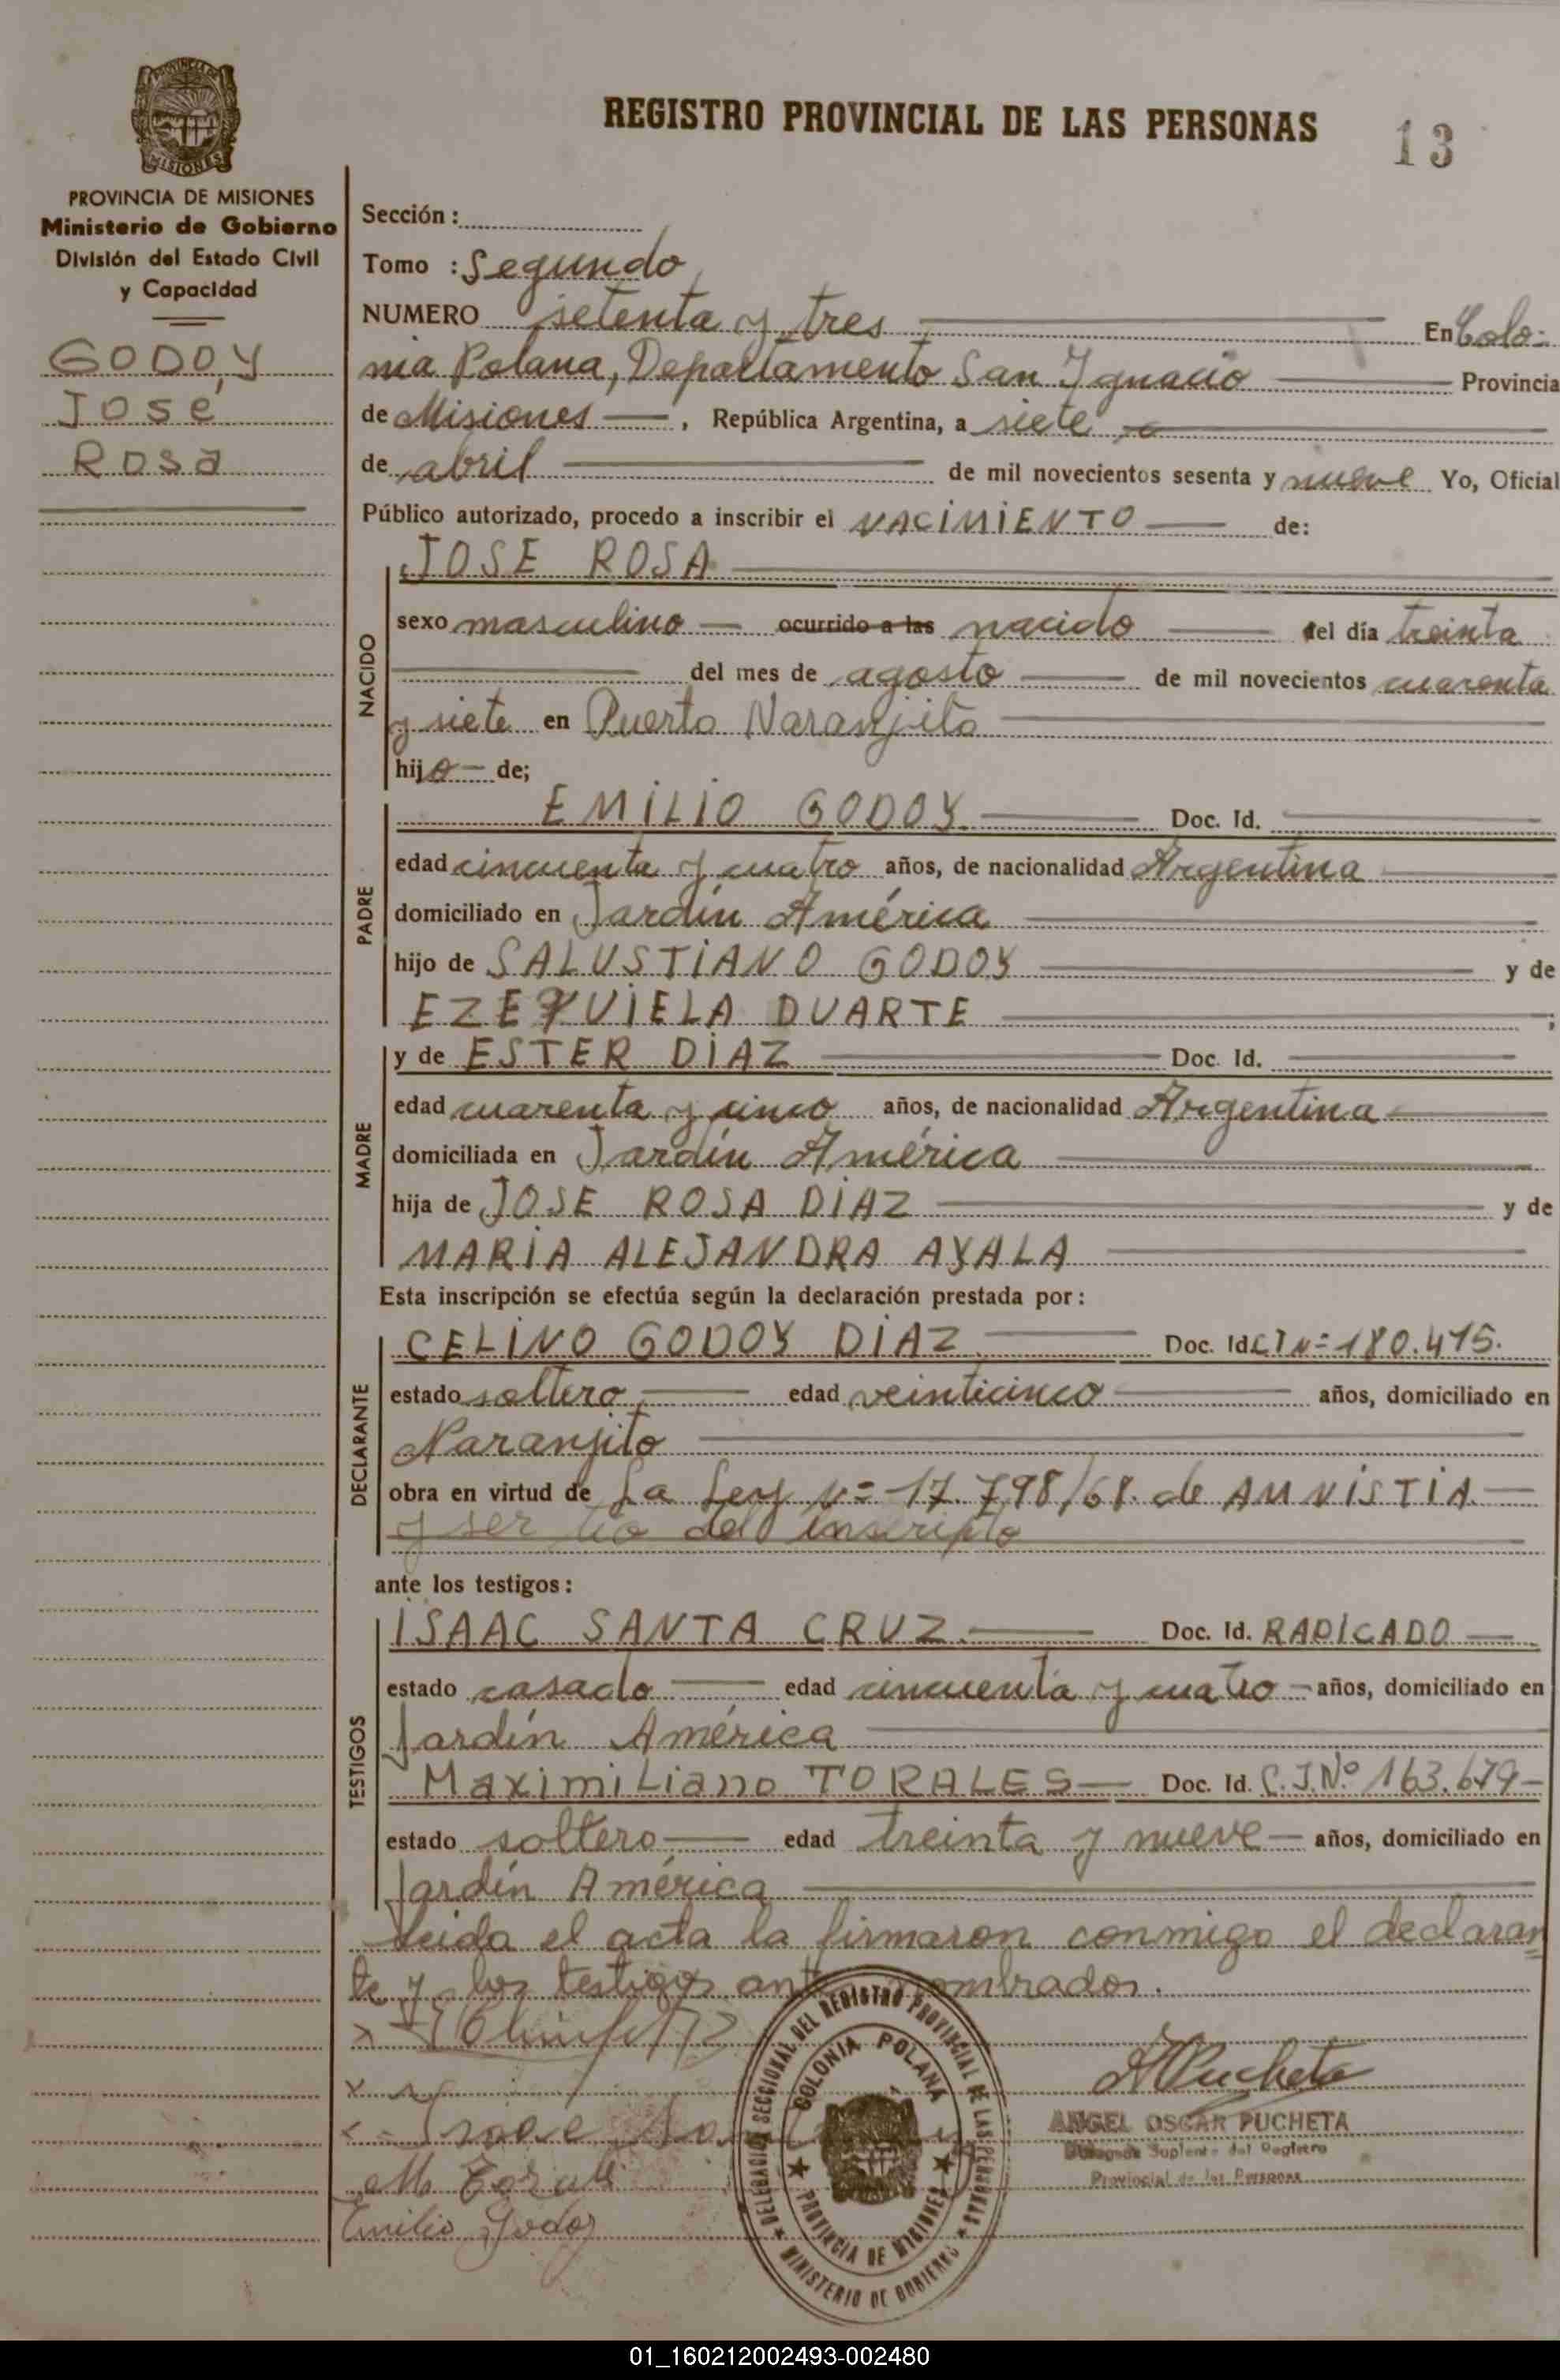 PROVINCIA DE MISIONES
Ministerio de Gobierno
División del Estado Civil
y Capacidad
GODOY
José
Rosa
REGISTRO PROVINCIAL DE LAS PERSONAS
13
Sección :
Tomo : Segundo
NUMERO setenta y tres En Colo-
nia Polana, Departamento San Ignacio Provincia
de Misiones, República Argentina, a siete
de abril de mil novecientos sesenta y nueve Yo, Oficial
Público autorizado, procedo a inscribir el NACIMIENTO de:
JOSE ROSA
NACIDO
sexo masculino ocurrido a las nacido del día treinta
del mes de agosto de mil novecientos cuarenta
y siete en Puerto Naranjito
hijo de;
PADRE
EMILIO GODOY Doc. Id.
edad cincuenta y cuatro años, de nacionalidad Argentina
domiciliado en Jardín América
hijo de SALUSTIANO GODOY y de
EZEQUIELA DUARTE ;
MADRE
y de ESTER DIAZ Doc. Id.
edad cuarenta y cinco años, de nacionalidad Argentina
domiciliada en Jardín América
hija de JOSE ROSA DIAZ y de
MARIA ALEJANDRA AYALA
Esta inscripción se efectúa según la declaración prestada por :
DECLARANTE
CELINO GODOY DIAZ Doc. Id. C I Nº 180.475.
estado soltero edad veinticinco años, domiciliado en
Naranjito
obra en virtud de La Ley Nº 17.798/68. de AMNISTIA
y ser tío del inscripto
ante los testigos :
TESTIGOS
ISAAC SANTA CRUZ. Doc. Id. RADICADO
estado casado edad cincuenta y cuatro años, domiciliado en
Jardín América
Maximiliano TORALES Doc. Id. C.I.Nº 163.679
estado soltero edad treinta y nueve años, domiciliado en
Jardín América
Leida el acta la firmaron conmigo el declaran
te y los testigos nombrados.
A Pucheta
ANGEL OSCAR PUCHETA
Delegado Suplente del Registro
Provincial de las Personas
M Torales
Emilio Godoy
DELEGACION SECCIONAL DEL REGISTRO PROVINCIAL DE LAS PERSONAS
COLONIA POLANA
PROVINCIA DE MISIONES
MINISTERIO DE GOBIERNO
01_160212002493-002480